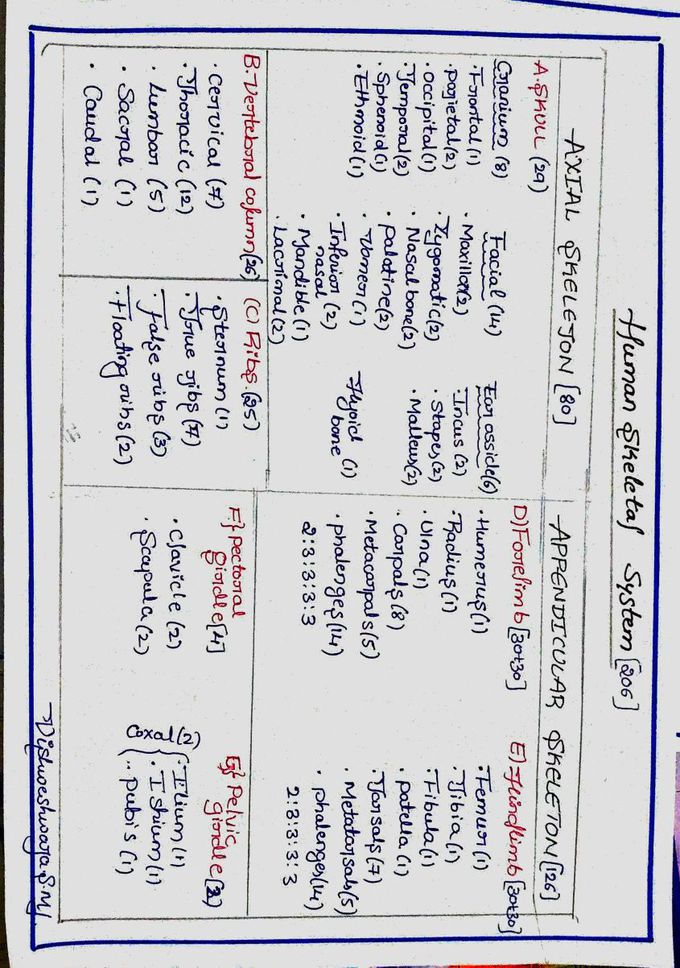 Human Skeletal System [206]
AXIAL SKELETON [80]
A. SKULL (29)
Cranium (8)
• Frontal (1)
• parietal (2)
• occipital (1)
• Temporal (2)
• Sphenoid (1)
• Ethmoid (1)
Facial (14)
• Maxilla (2)
• Zygomatic (2)
• Nasal bone (2)
• palatine (2)
• Vomer (1)
• Inferior (2)
nasal
• Mandible (1)
• Lacrimal (2)
Ear ossicle (6)
• Incus (2)
• Stapes (2)
• Malleus (2)
Hyoid (1)
bone
B. Vertebral column [26]
• Cervical (7)
• Thoracic (12)
• Lumbar (5)
• Sacral (1)
• Caudal (1)
(C) Ribs (25)
• Sternum (1)
• True ribs (7)
• False ribs (3)
• Floating ribs (2)
APPENDICULAR SKELETON [126]
D) Forelimb [30+30]
• Humerus (1)
• Radius (1)
• Ulna (1)
• Carpals (8)
• Metacarpals (5)
• phalenges (14)
2:3:3:3:3
E) Hindlimb [30+30]
• Femur (1)
• Tibia (1)
• Fibula (1)
• patella (1)
• Tarsals (7)
• Metatarsals (5)
• phalanges (14)
2:3:3:3:3
F} pectoral
girdle [4]
• Clavicle (2)
• Scapula (2)
G} Pelvic
girdle [2]
Coxal (2)
• Ilium (1)
• Ishium (1)
• pubis (1)
Vishweshwara.S.M